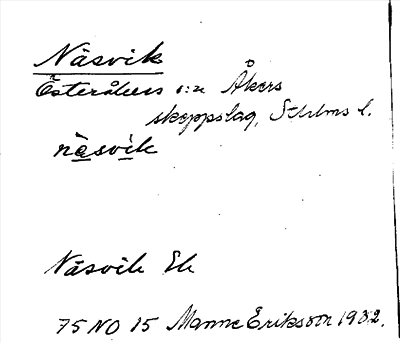 Näsvik
Österåkers s:n Åkers
skeppslag, Sthlms l.
näsvik
Näsvik Ek
75 NO 15 Manne Eriksson 1932.